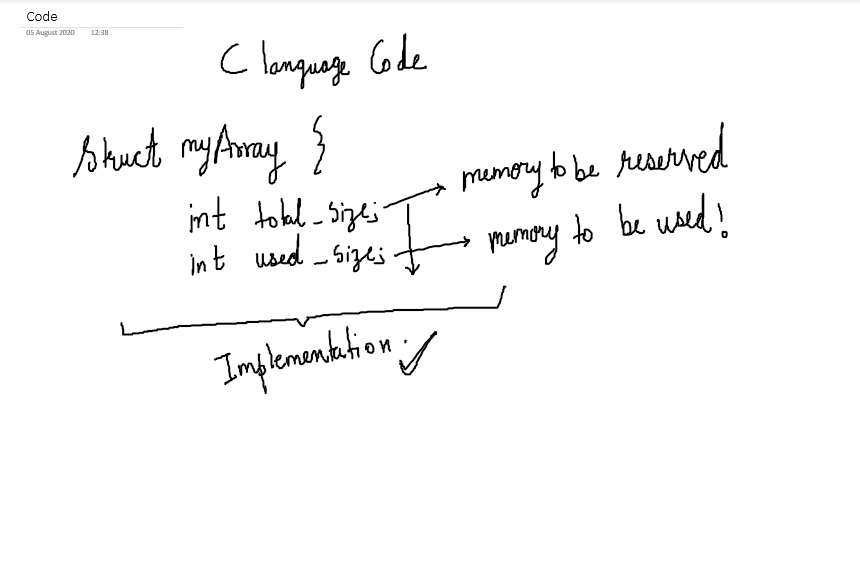 Code
05 August 2020 12:38
C language Code
Struct myArray {
int total_size; memory to be reserved
int used_size; memory to be used!
Implementation.